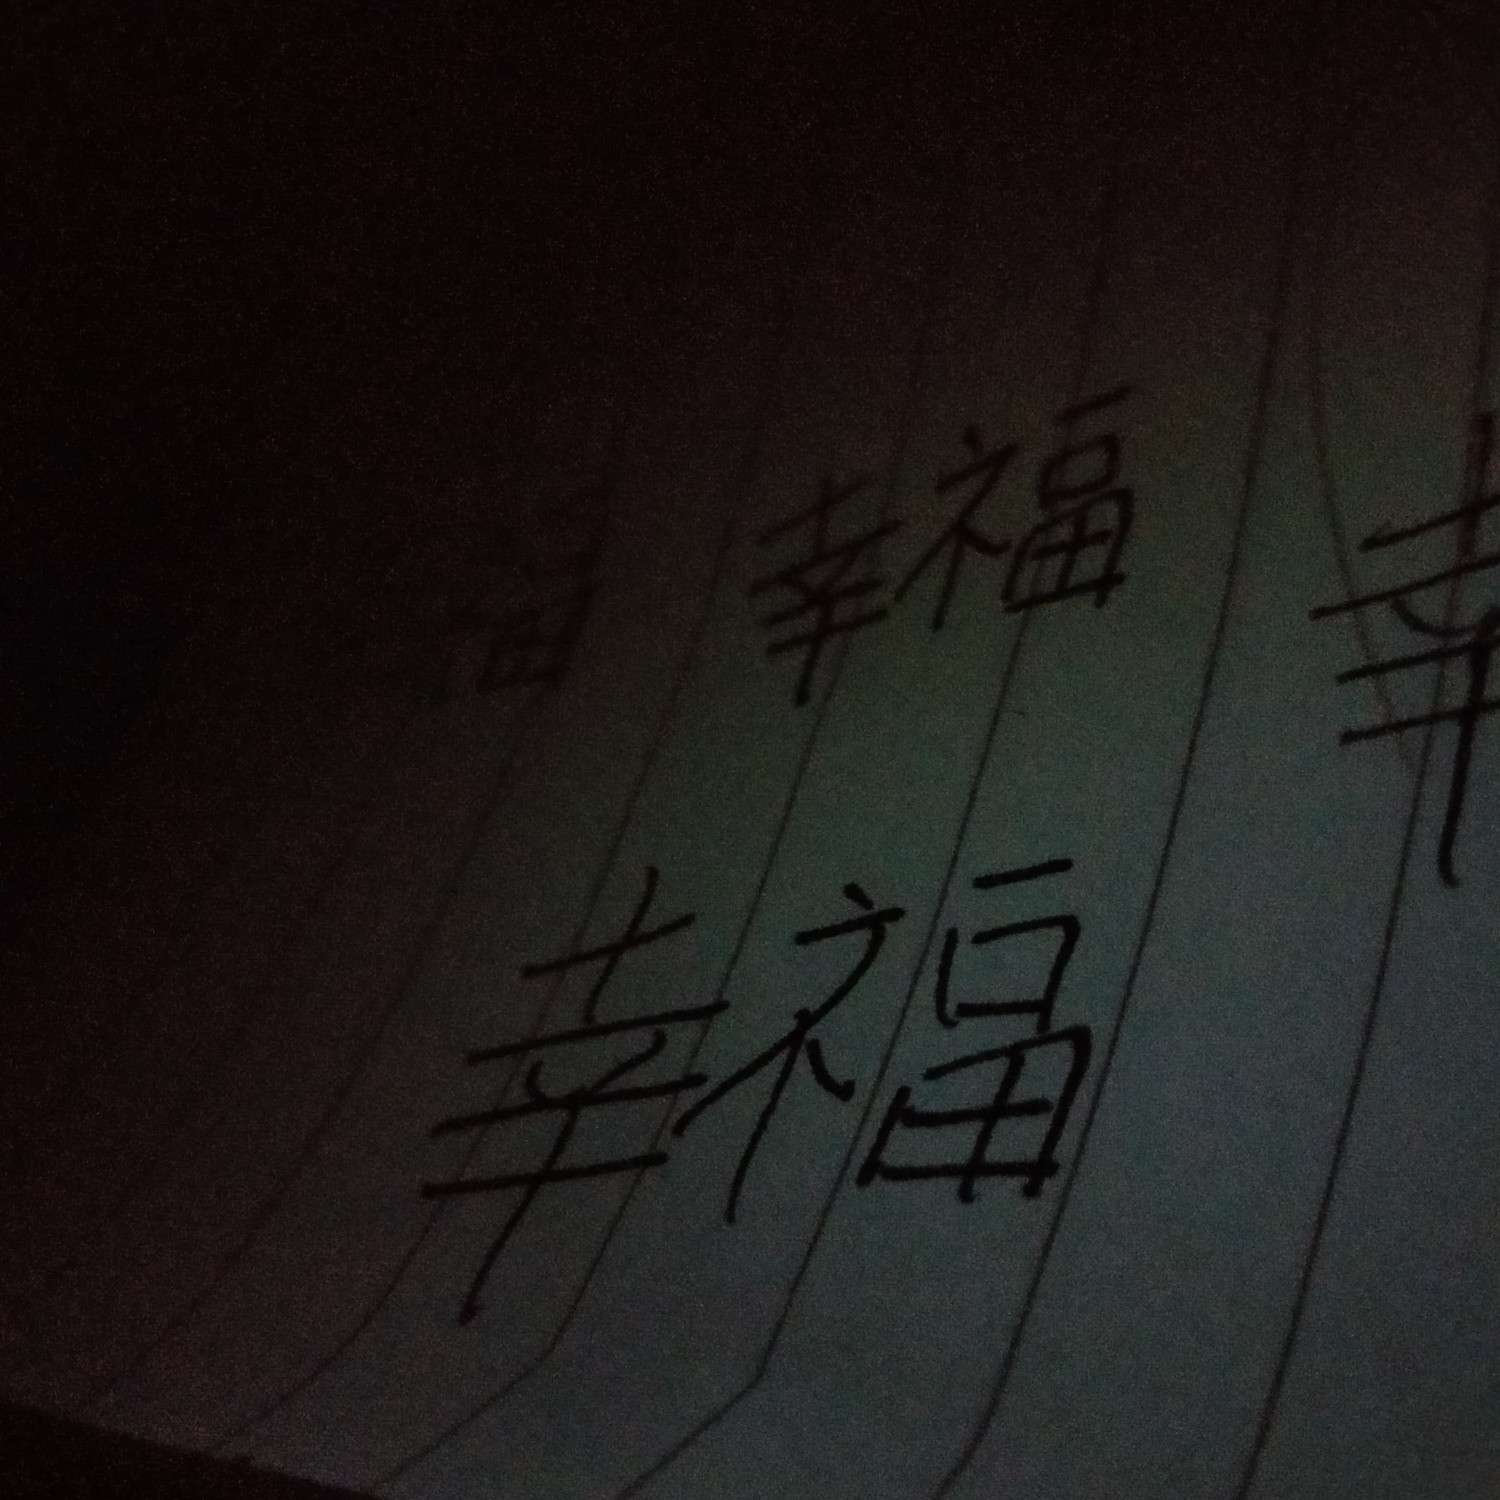 幸福 幸
幸福